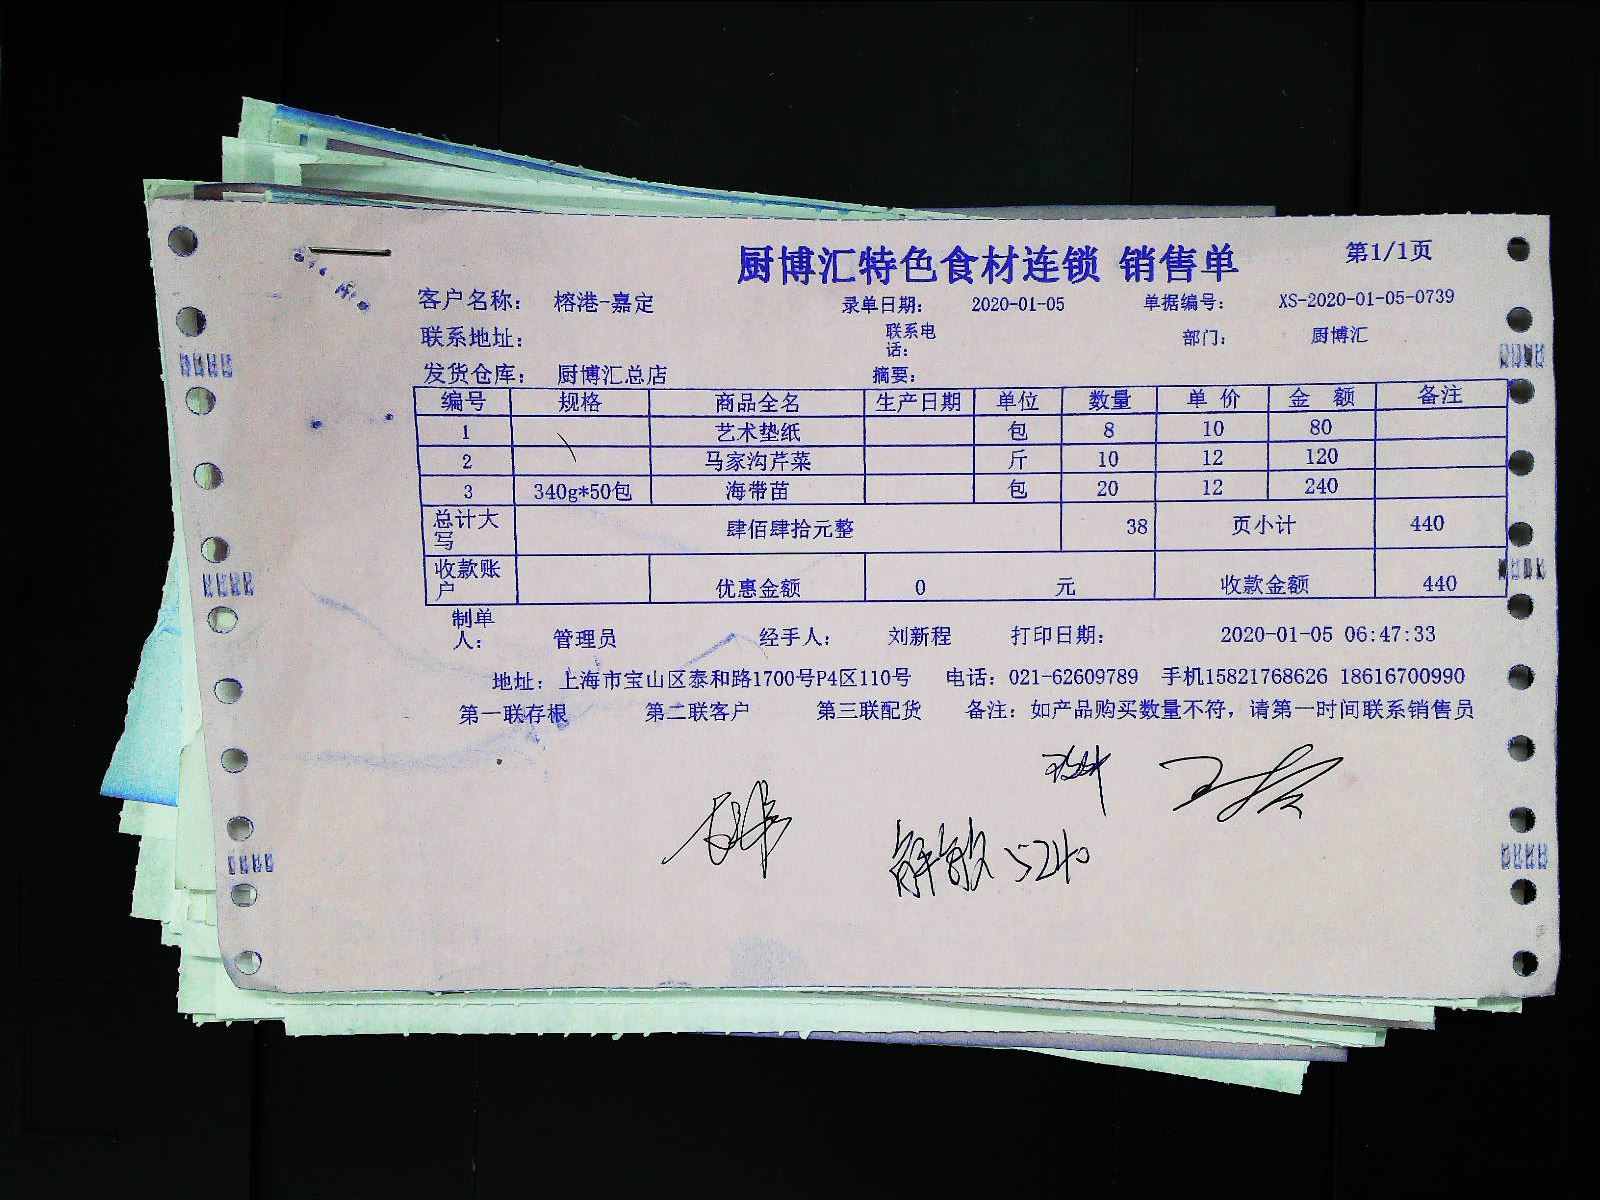 厨博汇特色食材连锁 销售单 第1/1页
客户名称： 榕港-嘉定 录单日期： 2020-01-05 单据编号： XS-2020-01-05-0739
联系地址： 联系电话： 部门： 厨博汇
发货仓库： 厨博汇总店 摘要：
编号 规格 商品全名 生产日期 单位 数量 单 价 金 额 备注
1 艺术垫纸 包 8 10 80
2 马家沟芹菜 斤 10 12 120
3 340g*50包 海带苗 包 20 12 240
总计大写 肆佰肆拾元整 38 页小计 440
收款账户 优惠金额 0 元 收款金额 440
制单人： 管理员 经手人： 刘新程 打印日期： 2020-01-05 06:47:33
地址：上海市宝山区泰和路1700号P4区110号 电话：021-62609789 手机15821768626 18616700990
第一联存根 第二联客户 第三联配货 备注：如产品购买数量不符，请第一时间联系销售员
解敏 5240